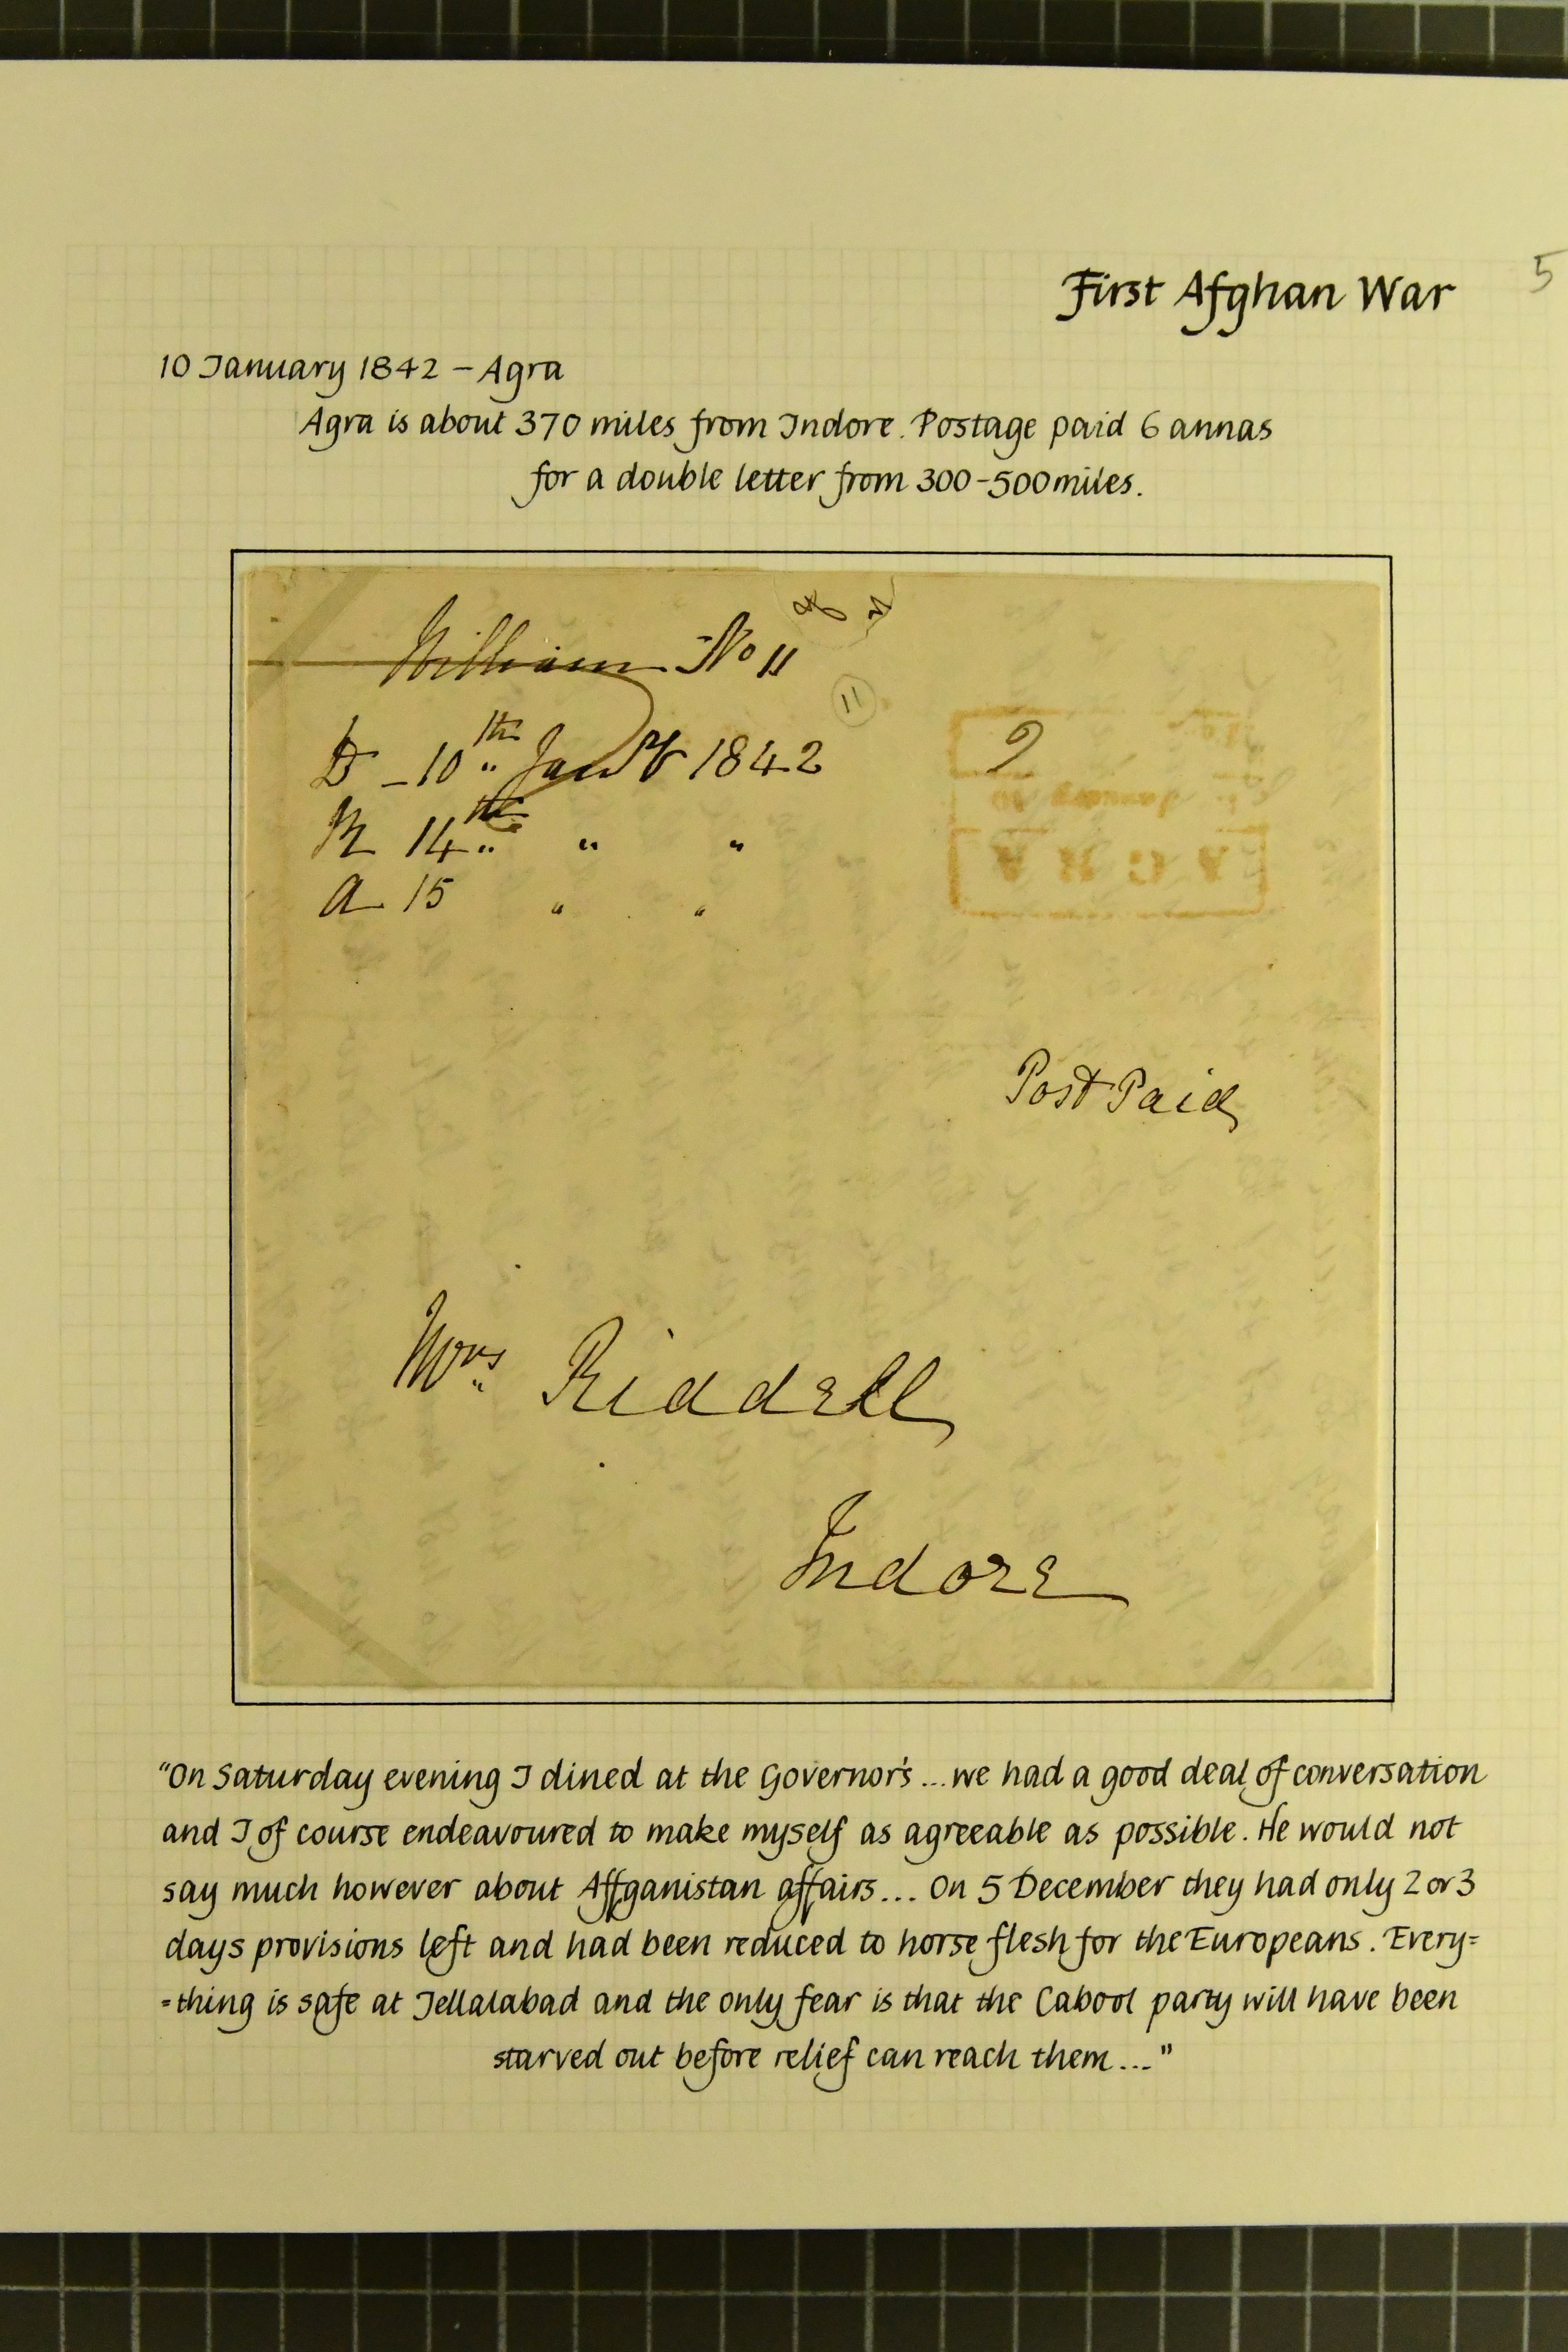 First Afghan War
5
10 January 1842 – Agra
Agra is about 370 miles from Indore. Postage paid 6 annas
for a double letter from 300–500 miles.
William No 11
11
D – 10th Jany 1842
R 14th " "
A 15 " "
January 10
AGRA
Post Paid
Mrs Riddell
Indore
"On Saturday evening I dined at the Governor's ... we had a good deal of conversation
and I of course endeavoured to make myself as agreeable as possible. He would not
say much however about Affganistan affairs ... On 5 December they had only 2 or 3
days provisions left and had been reduced to horse flesh for the Europeans. Every=
=thing is safe at Jellalabad and the only fear is that the Cabool party will have been
starved out before relief can reach them ..."